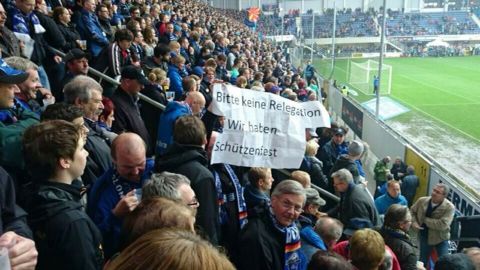 Bitte keine Relegation
Wir haben
Schützenfest